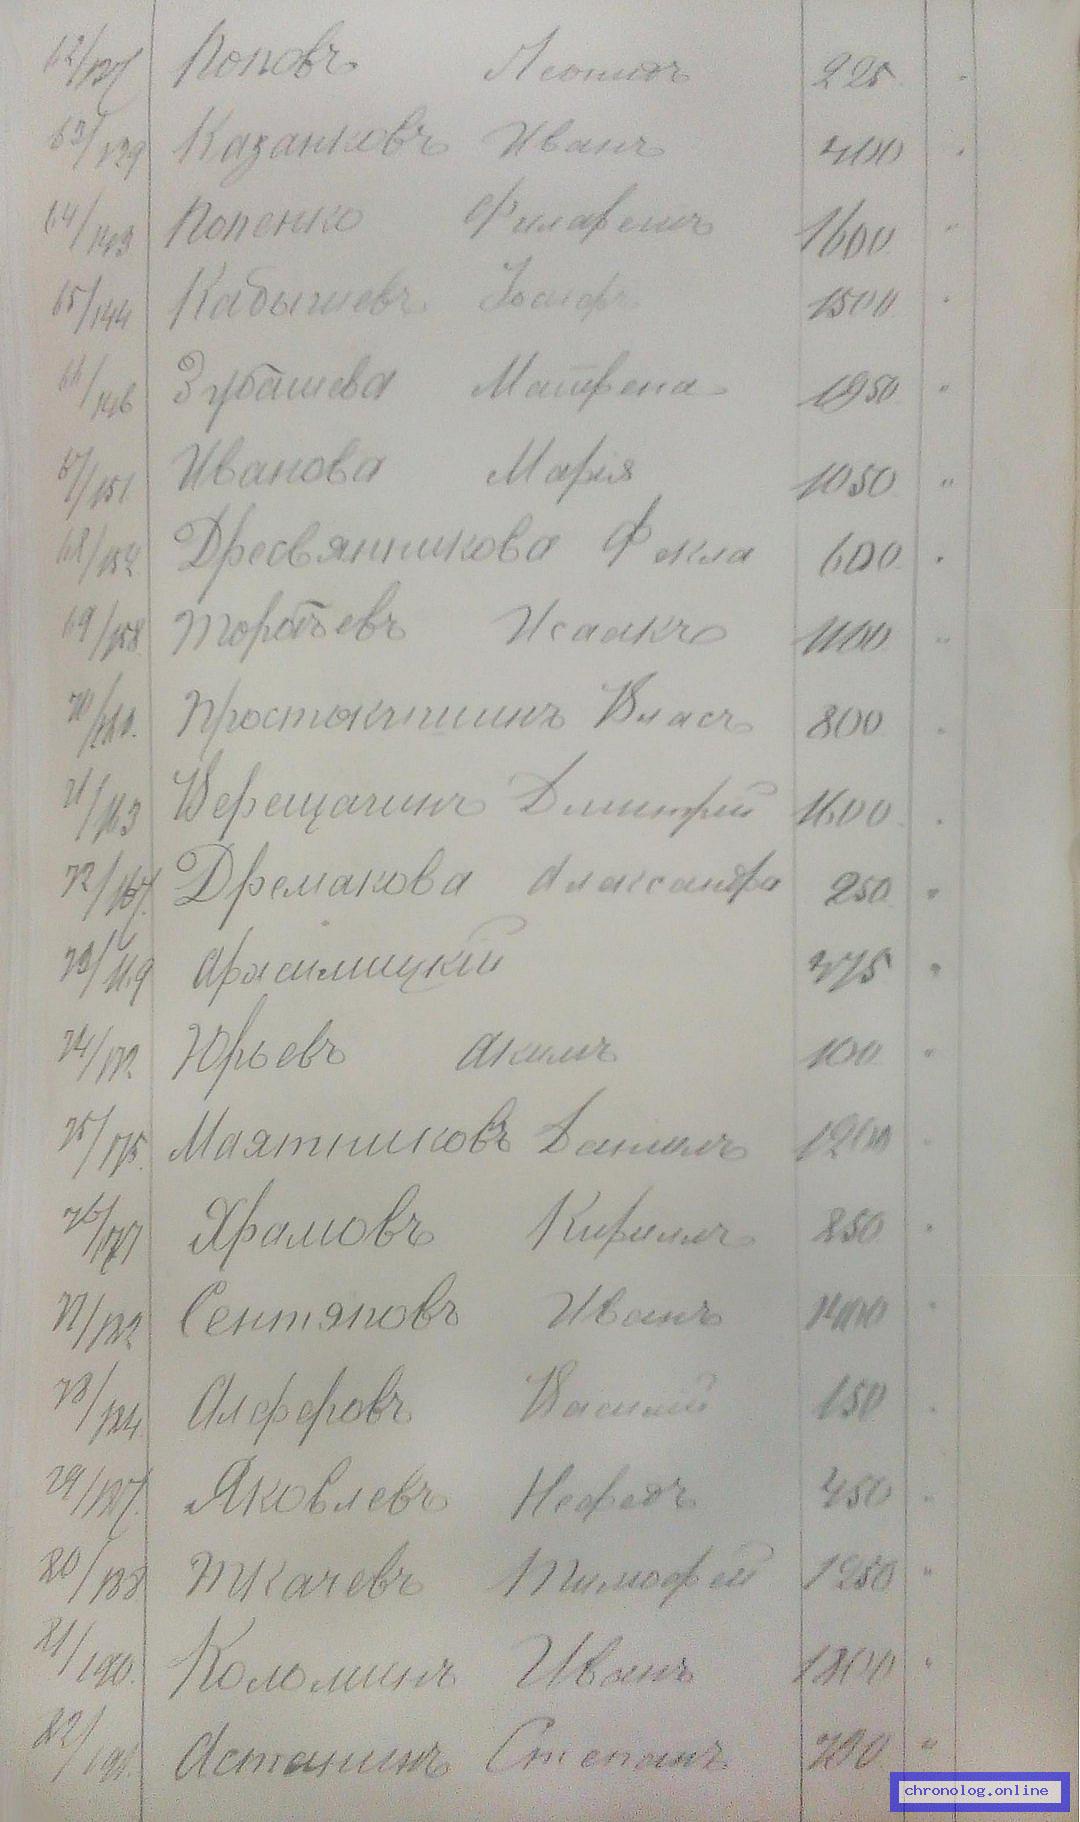 62/137 Поповъ Леонидъ 225
63/139 Казанковъ Иванъ 400
64/143 Попенко Филаретъ 1600 "
65/144 Кабышевъ Іосифъ 1500 "
66/146 Зубашева Матрена 1950 "
67/151 Иванова Марія 1050 "
68/154 Дресвянникова Фекла 600 "
69/158 Торопьевъ Исаакъ 1100 "
70/160 Простокишинъ Власъ 800
71/163 Верещагинъ Дмитрій 1600
72/167 Дремакова Александра 250 "
73/169 375 "
74/172 Юрьевъ Акимъ 100 "
75/175 Маятниковъ Даніилъ 1200
76/177 Храмовъ Кириллъ 850
77/182 Сентяповъ Иванъ 1400
78/184 Алферовъ Василій 150
79/187 Яковлевъ Нефедъ 450
80/188 Ткачевъ Тимофей 1250 "
81/190 Коломинъ Иванъ 1800 "
82/191 Астанинъ Степанъ "
chronolog.online